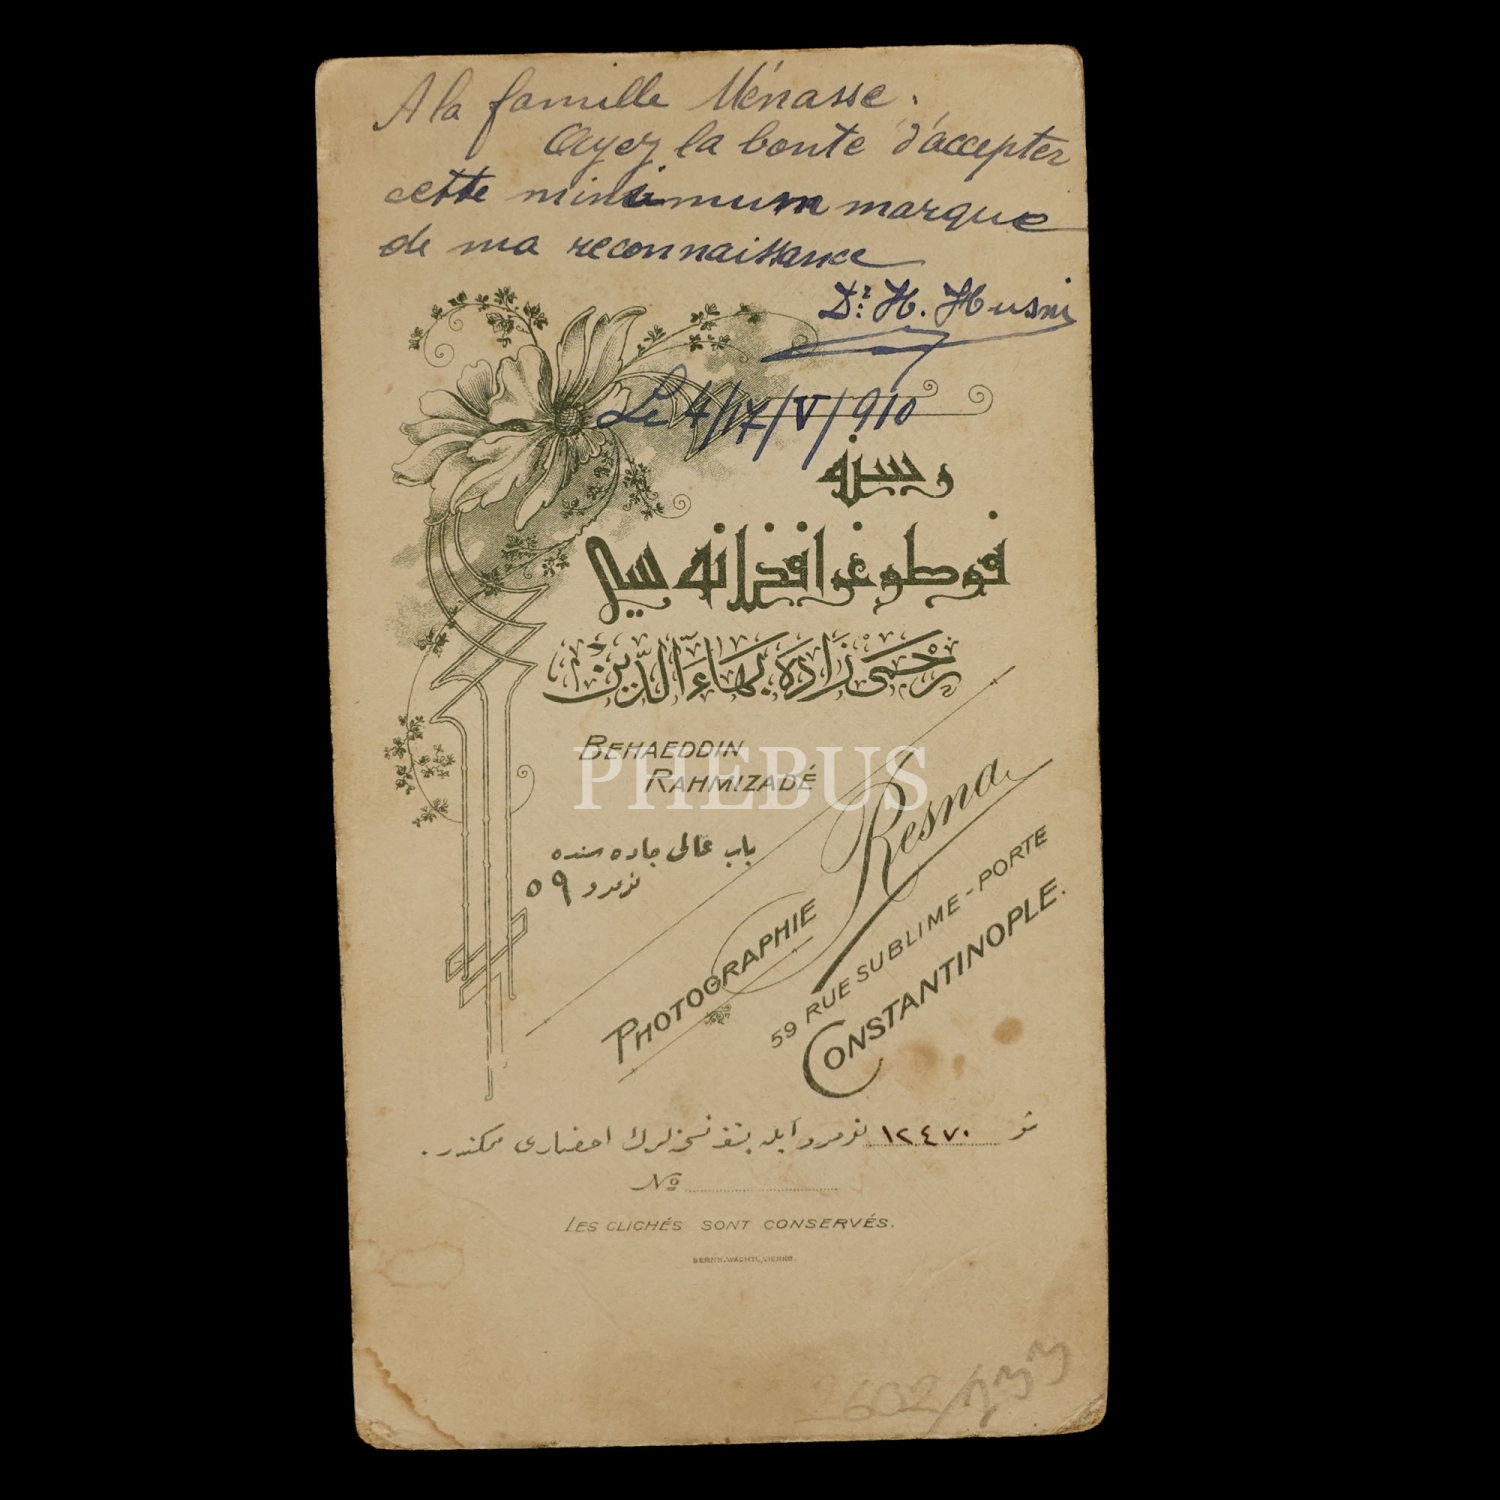 A la famille Ménasse.
Ayez la bonté d'accepter
cette minimum marque
de ma reconnaissance
Dr. H. Husni
Le 4/17/V/910
رسنه
فوطوغرافخانه سی
رحمی زاده بهاء الدین
BEHAEDDIN
RAHMIZADÉ
PHEBUS
باب عالی جاده سنده
نومرو ٥٩
PHOTOGRAPHIE Resna
59 RUE SUBLIME-PORTE
CONSTANTINOPLE.
شو ١٢٤٧٠ نومرو ایله بشقه نسخه لرك احضاری ممكندر.
No
LES CLICHÉS SONT CONSERVÉS.
BERNH. WACHTL, VIENNE.
2602/133